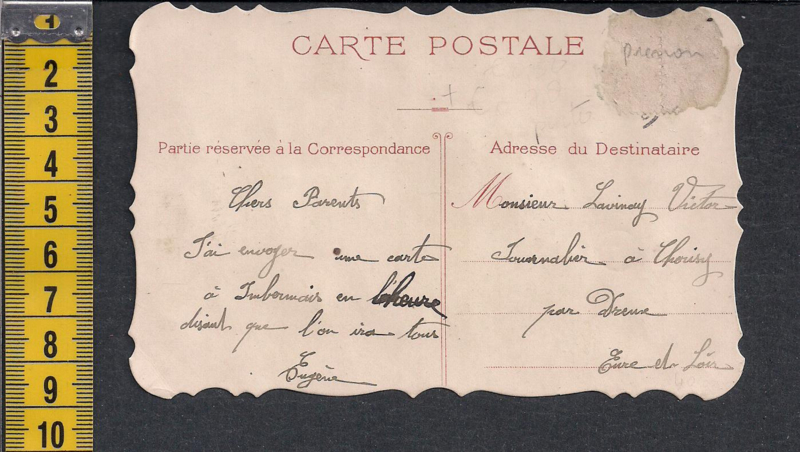 1
2
3
4
5
6
7
8
9
10
CARTE POSTALE
prenom
Partie réservée à la Correspondance
Chers Parents
J'ai envoyer une carte
à Imbermais en l'heure
disant que l'on ira tous
Eugène
Adresse du Destinataire
Monsieur Lavinay Victor
Journalier à Choisy
par Dreux
Eure et Loir